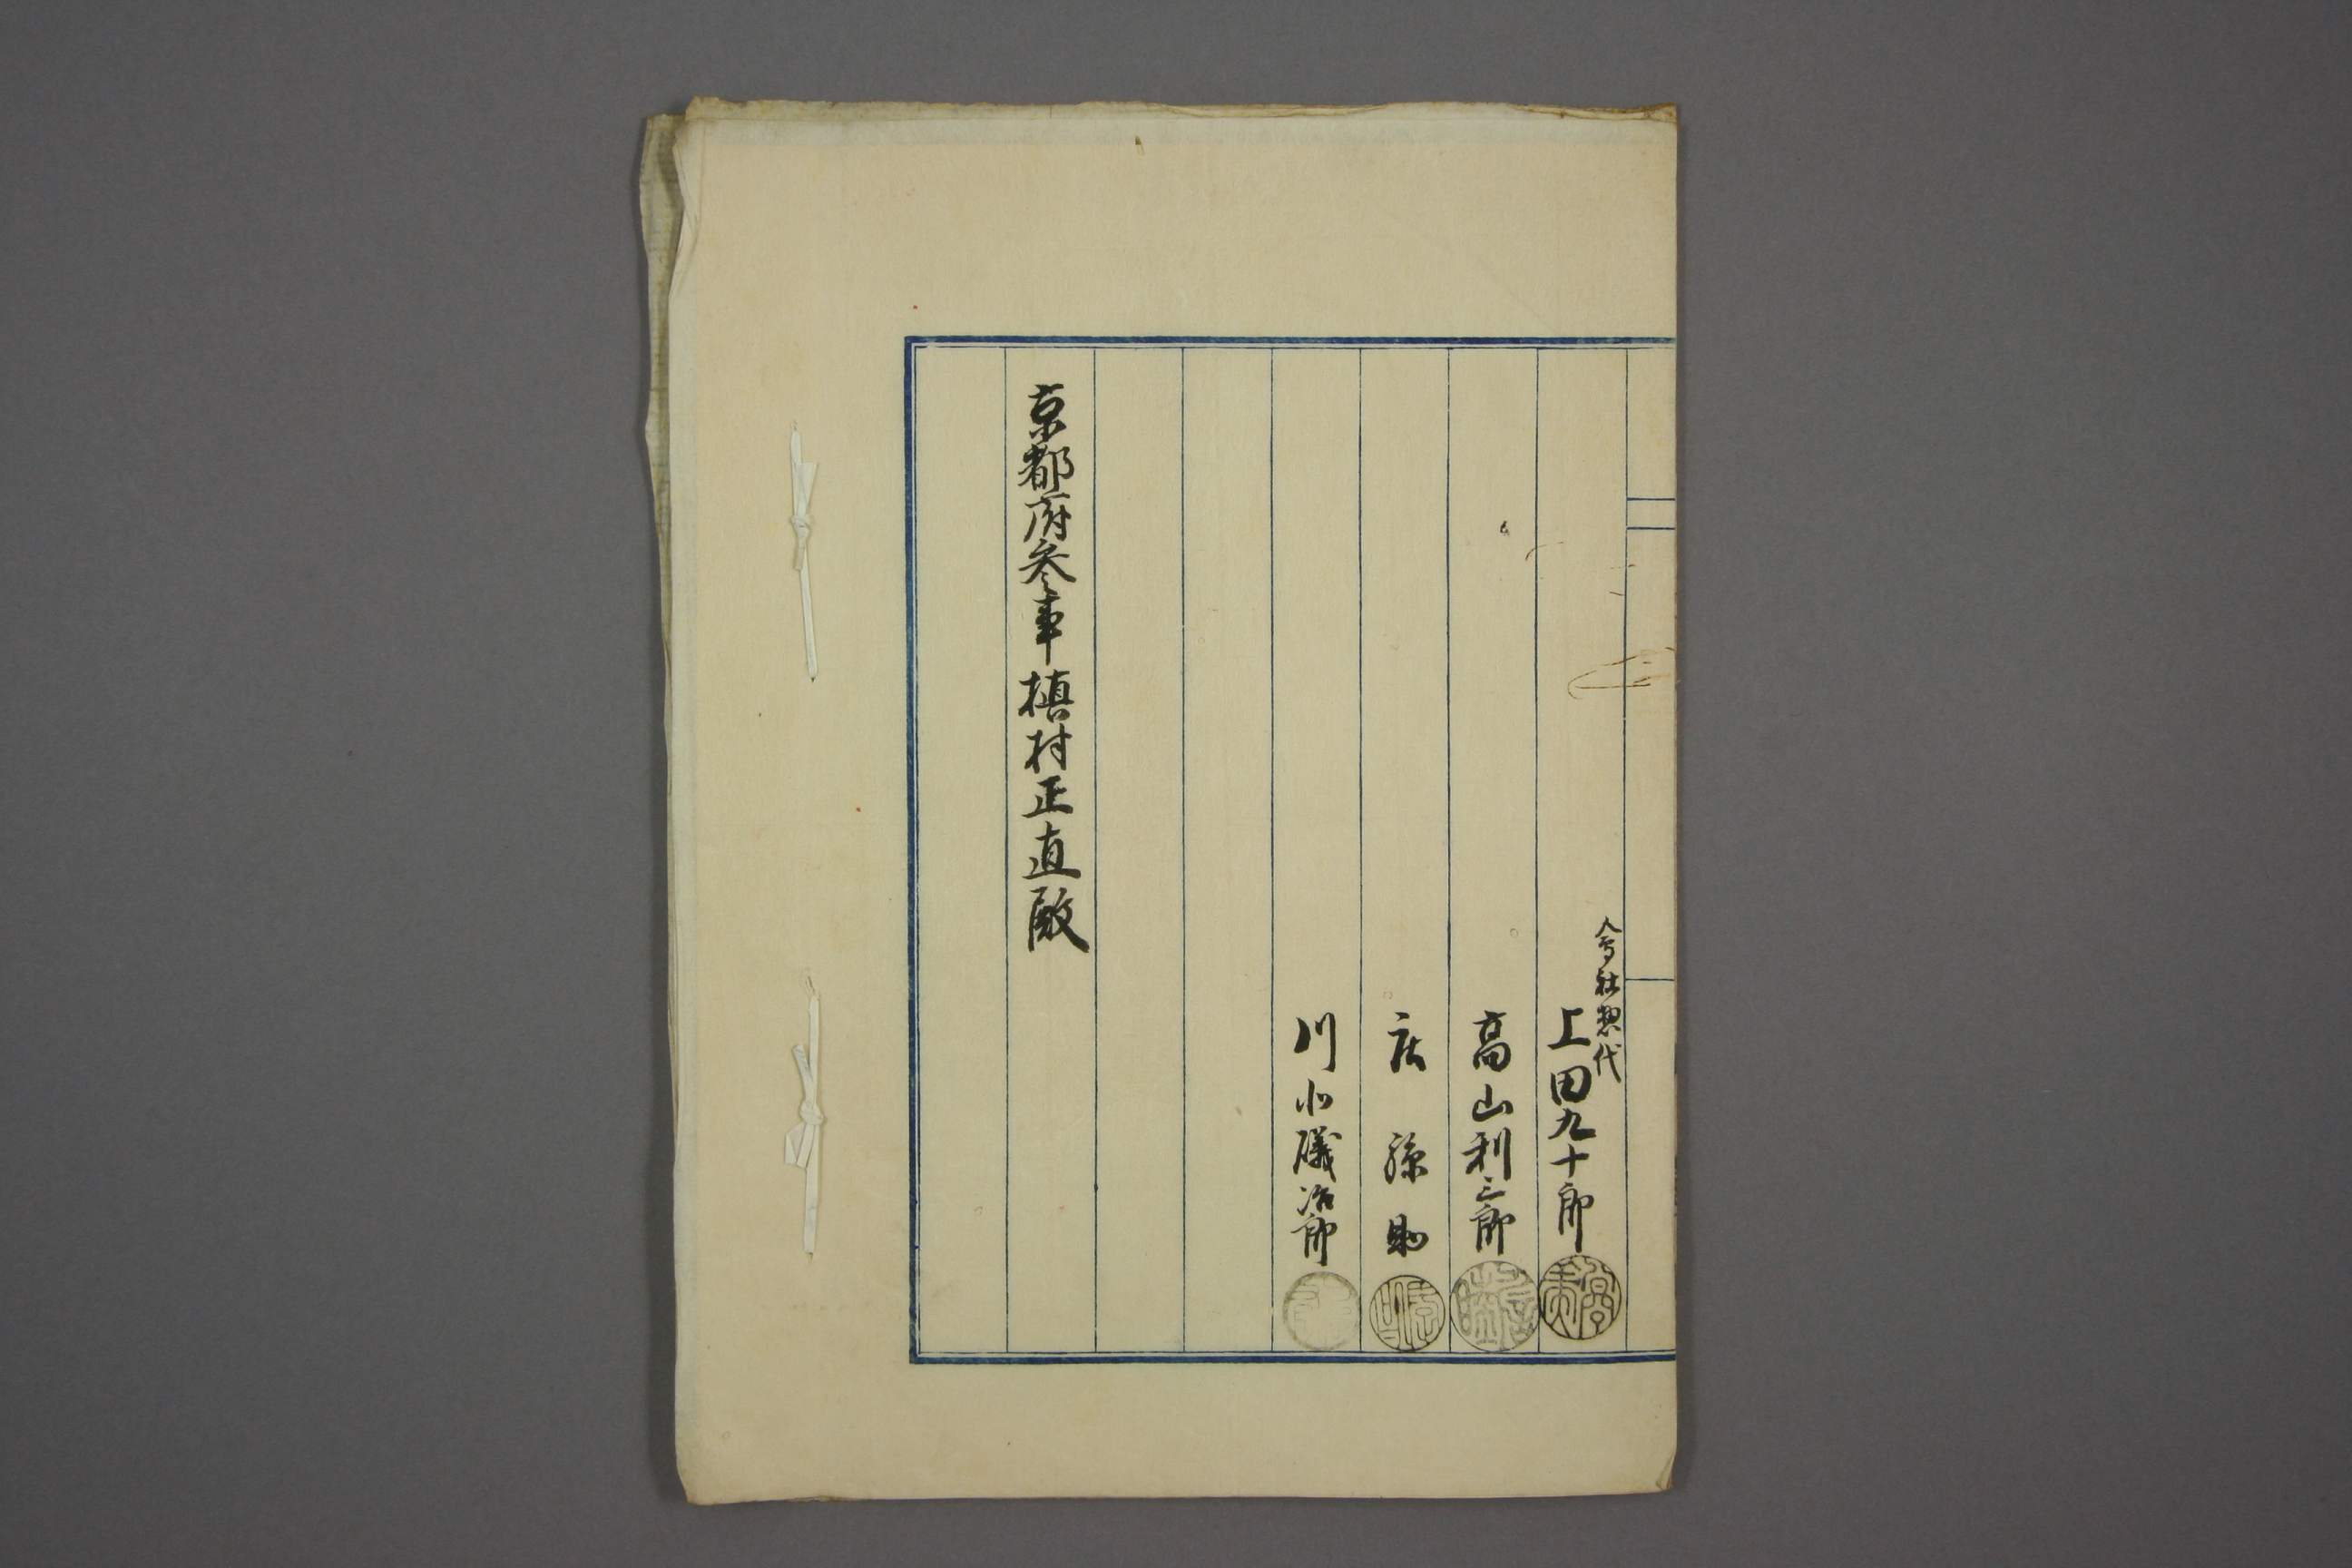 會社惣代
上田九十郎
高山利三郎
庄孫助
川北礒治郎
京都府参事槙村正直殿